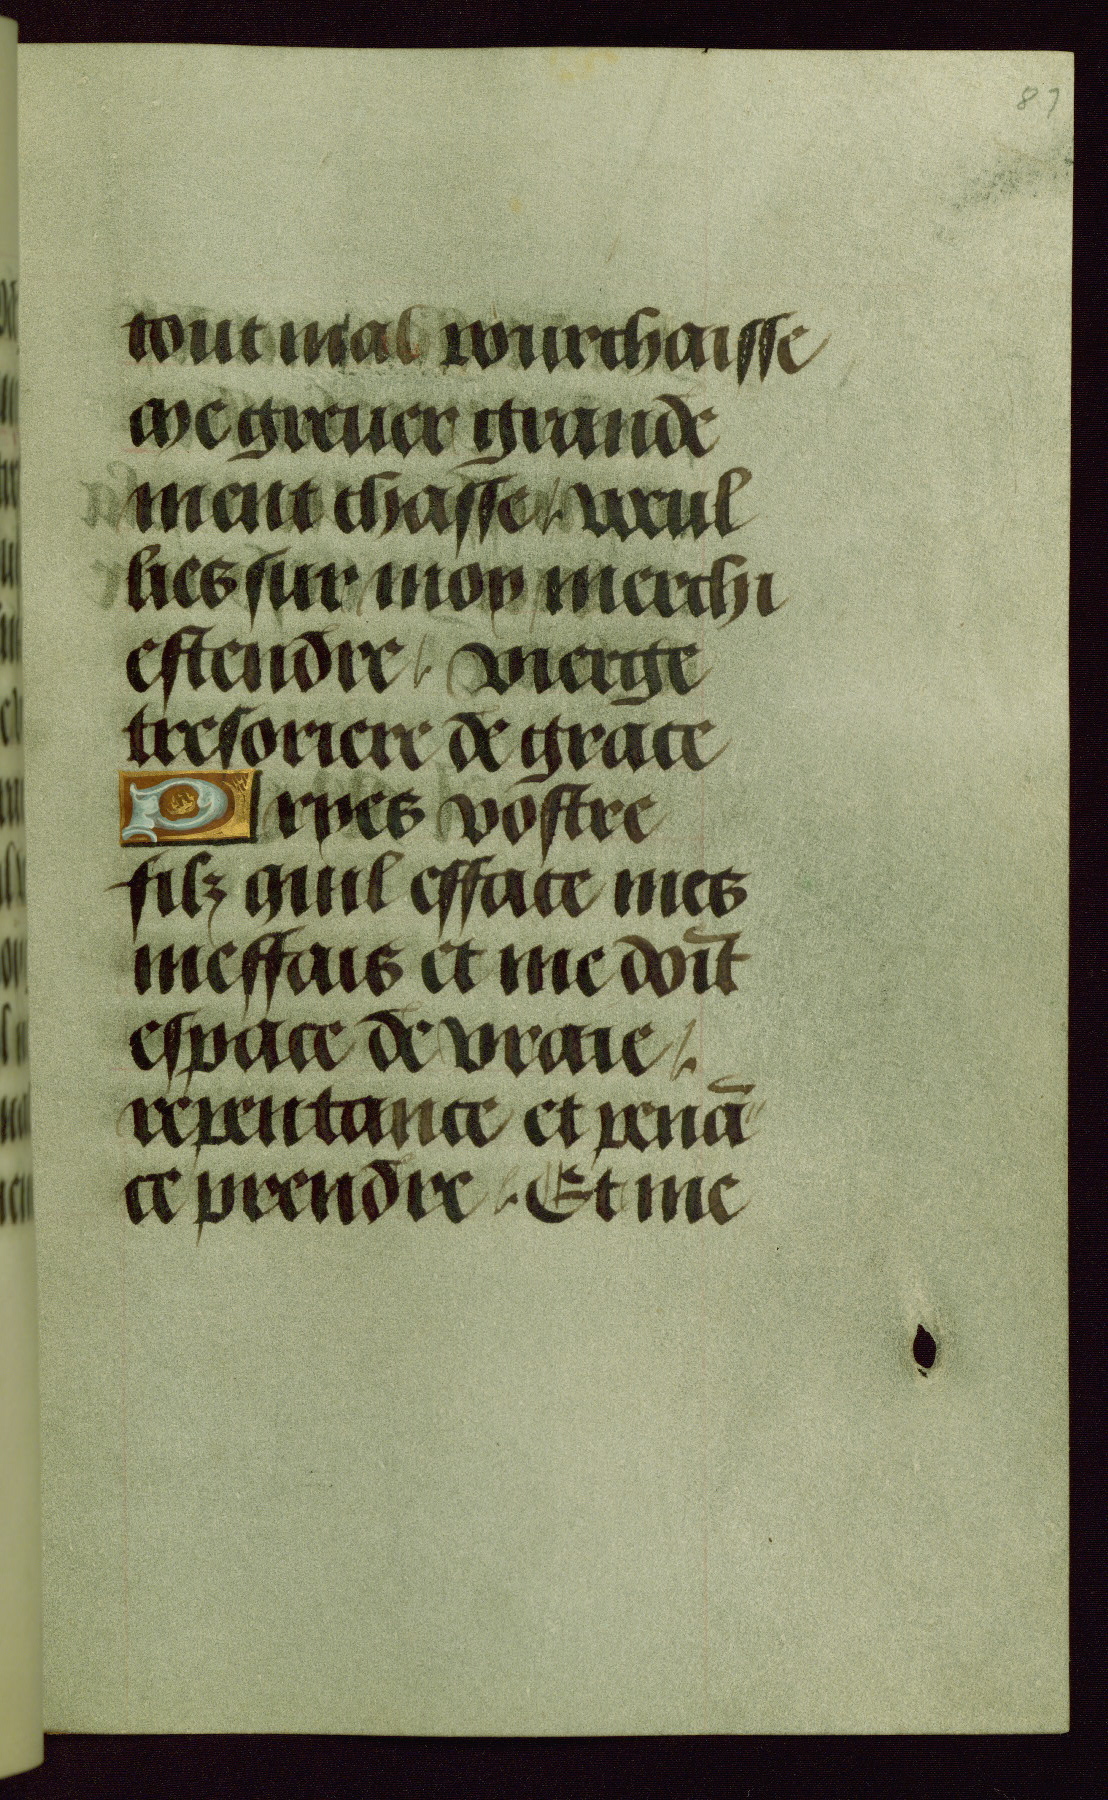 87
tout mal pourchasse
Me greuer grande
ment chasse / veeul
lies sur moy merchi
estendre / vierge
tresoriere de grace
Pryes vostre
filz quil efface mes
meffais et me doit
espace de vraie /
repentance et penā
ce prendre / Et me